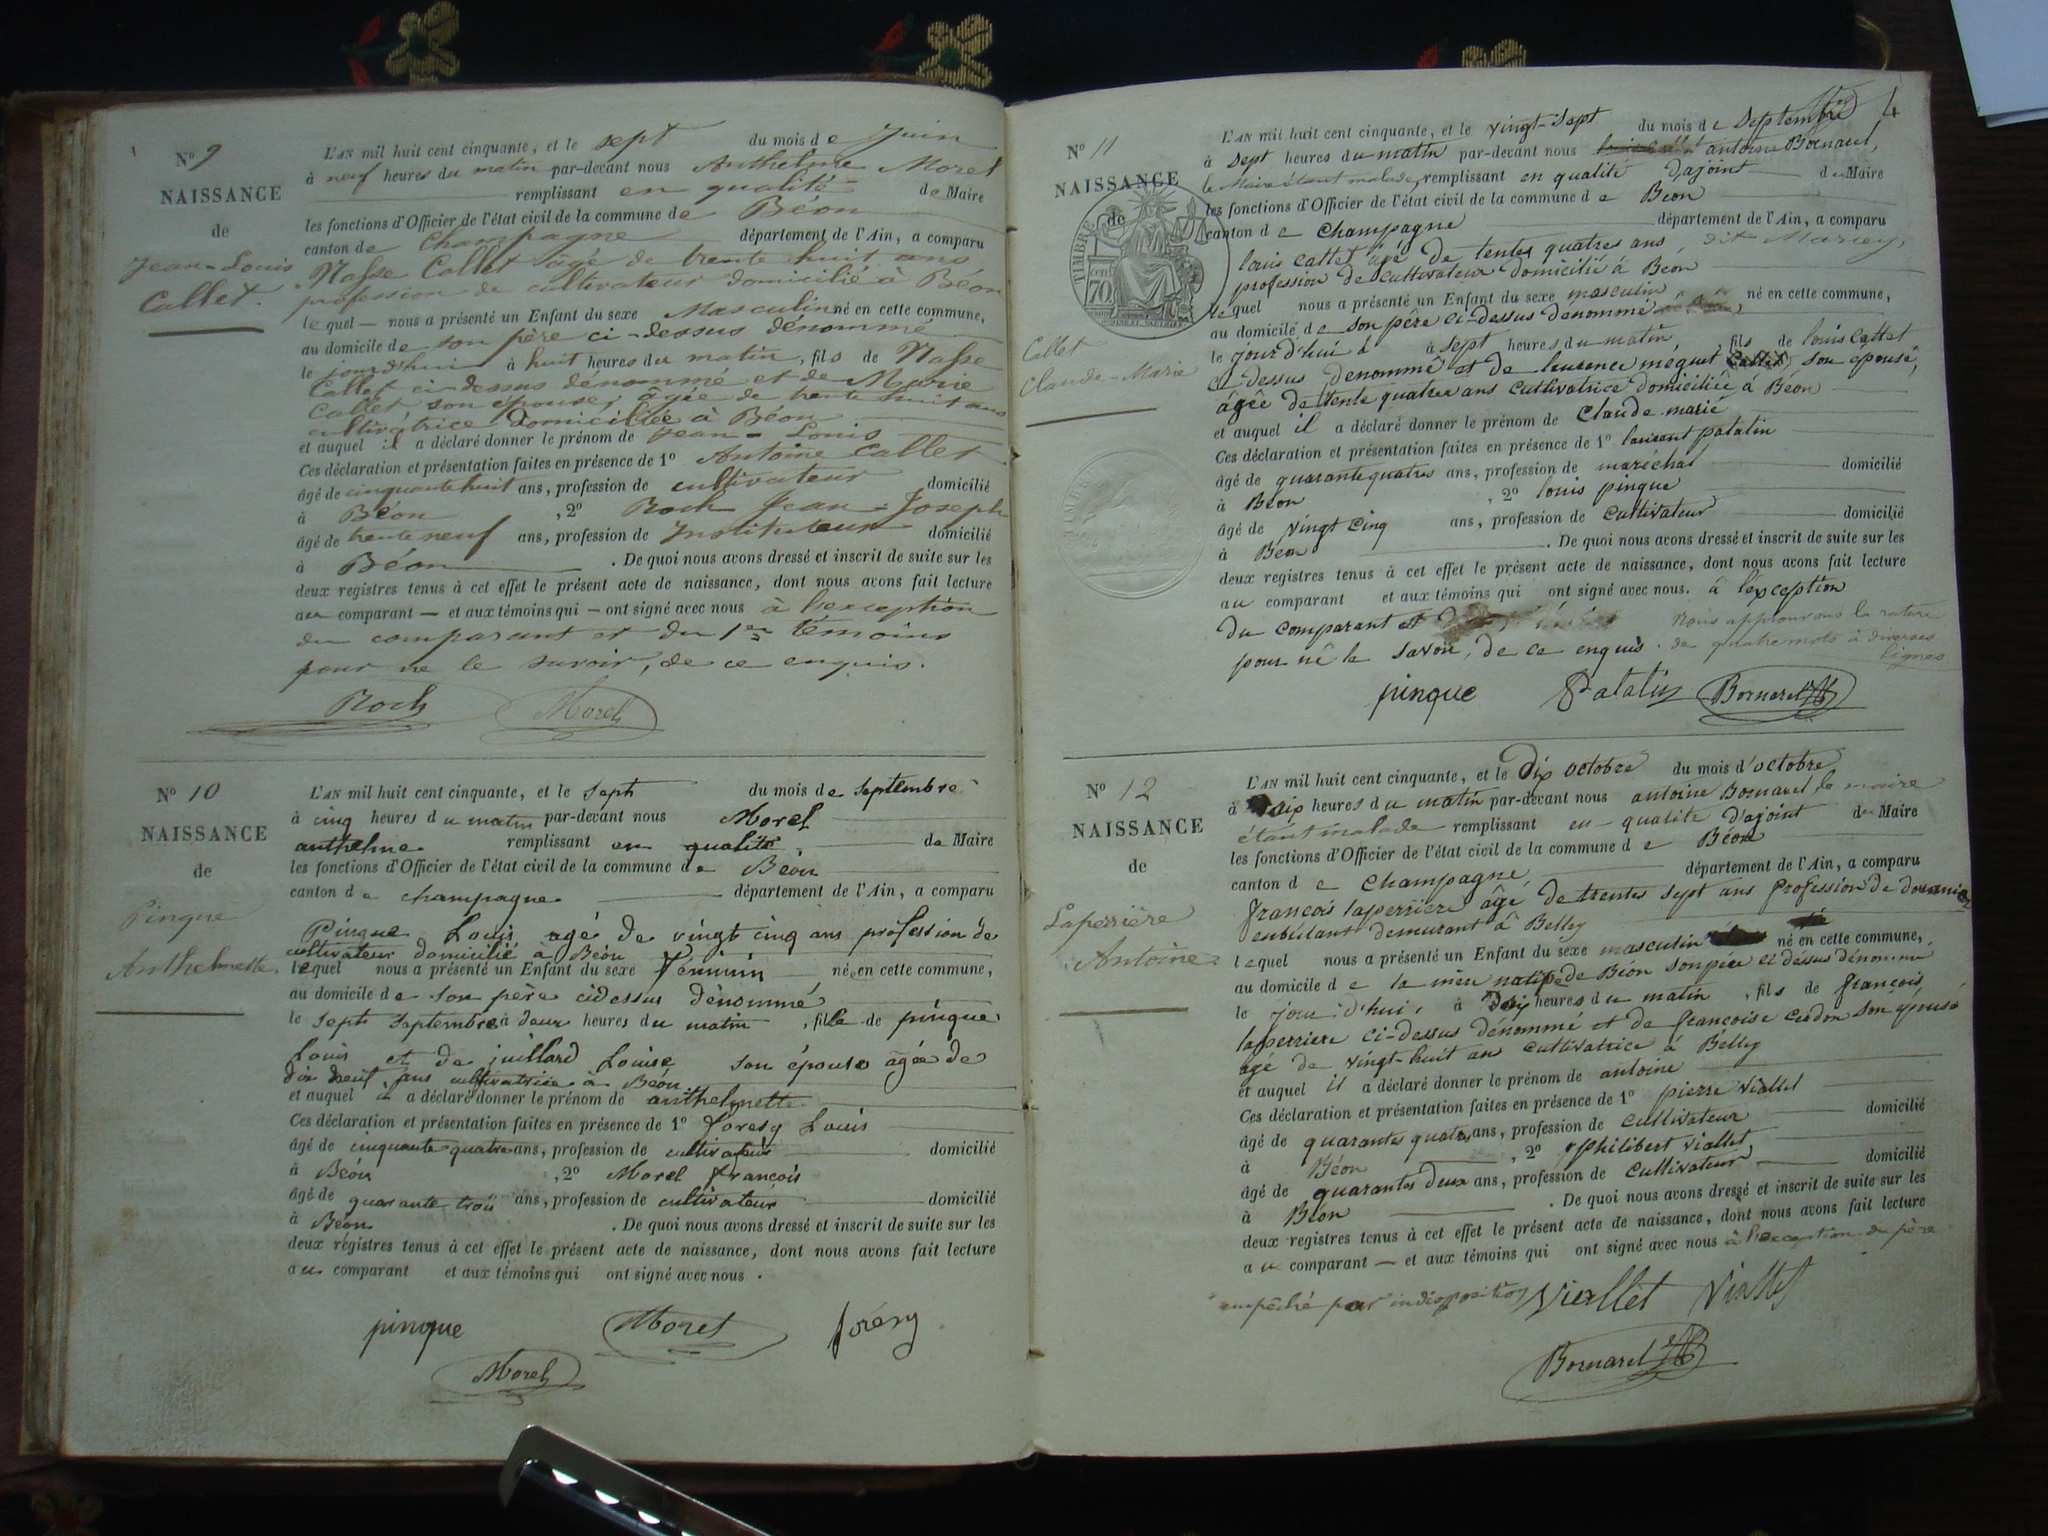 N° 9
NAISSANCE
de
Jean-Louis
Callet.
L'AN mil huit cent cinquante, et le sept du mois de Juin
à neuf heures du matin par-devant nous Anthelme Morel
remplissant en qualité de Maire
les fonctions d'Officier de l'état civil de la commune de Béon
canton de Champagne département de l'Ain, a comparu
Callet âgé de trente huit ans
profession de cultivateur domicilié à Béon
lequel — nous a présenté un Enfant du sexe Masculin né en cette commune,
au domicile de son père ci-dessus dénommé
le jourd'hui à huit heures du matin, fils de
Callet ci-dessus dénommé et de Marie
Callet son épouse, âgée de trente huit ans
cultivatrice domiciliée à Béon
et auquel il a déclaré donner le prénom de Jean-Louis
Ces déclaration et présentation faites en présence de 1° Antoine Callet
âgé de cinquante huit ans, profession de cultivateur domicilié
à Béon , 2° Roch Jean-Joseph
âgé de trente neuf ans, profession de Instituteur domicilié
à Béon . De quoi nous avons dressé et inscrit de suite sur les
deux registres tenus à cet effet le présent acte de naissance, dont nous avons fait lecture
au comparant — et aux témoins qui — ont signé avec nous à l'exception
du comparant et du 1er témoins
pour ne le savoir, de ce enquis.
Roch Morel
N° 10
NAISSANCE
de
Pinque
Anthelmette.
L'AN mil huit cent cinquante, et le septs du mois de septembre
à cinq heures du matin par-devant nous Morel
anthelme remplissant en qualité de Maire
les fonctions d'Officier de l'état civil de la commune de Béon
canton de champagne département de l'Ain, a comparu
Pinque Louis agé de vingt cinq ans profession de
cultivateur domicilié à Béon
lequel nous a présenté un Enfant du sexe féminin né en cette commune,
au domicile de son père cidessus dénommé
le septs septembre à deux heures du matin , fille de pinque
Louis et de juillard Louise son épouse âgée de
dix neuf ans cultivatrice à Béon
et auquel a déclaré donner le prénom de anthelmette
Ces déclaration et présentation faites en présence de 1° foresy Louis
âgé de cinquante quatre ans, profession de cultivateur domicilié
à Béon , 2° Morel françois
âgé de quarante trois ans, profession de cultivateur domicilié
à Béon . De quoi nous avons dressé et inscrit de suite sur les
deux registres tenus à cet effet le présent acte de naissance, dont nous avons fait lecture
au comparant et aux témoins qui ont signé avec nous .
pinque Morel forésy
Morel
4
N° 11
NAISSANCE
de
TIMBRE
70 cent
Callet
Claude-Marie
L'AN mil huit cent cinquante, et le vingt-sept du mois de Septembre
à sept heures du matin par-devant nous antoine Bornarel,
le Maire étant malade, remplissant en qualité d'ajoint du Maire
les fonctions d'Officier de l'état civil de la commune de Béon
canton de Champagne département de l'Ain, a comparu
louis callet âgé de tentes quatres ans, dit Mariey,
profession de cultivateur domicilié à Béon
lequel nous a présenté un Enfant du sexe masculin né en cette commune,
au domicile de son père ci-dessus dénommé
le jourd'hui à à sept heures du matin , fils de louis Callet
ci dessus dénommé et de meguet son épouse,
âgée de tente quatres ans cultivatrice domiciliée à Béon
et auquel il a déclaré donner le prénom de Claude-marie
Ces déclaration et présentation faites en présence de 1° laurent patatin
âgé de quarante quatres ans, profession de maréchal domicilié
à Béon , 2° louis pinque
âgé de vingt cinq ans, profession de cultivateur domicilié
à Béon . De quoi nous avons dressé et inscrit de suite sur les
deux registres tenus à cet effet le présent acte de naissance, dont nous avons fait lecture
au comparant et aux témoins qui ont signé avec nous. à l'exception
du comparant et Nous approuvons la rature
pour nê le savoir, de ce enquis. de quatre mots à diverses
lignes
pinque Patatin Bornarel
N° 12
NAISSANCE
de
Laperrière
Antoine
L'AN mil huit cent cinquante, et le Dix octobre du mois d'octobre
à dix heures du matin par-devant nous antoine Bornarel le maire
étant malade remplissant en qualité d'ajoint du Maire
les fonctions d'Officier de l'état civil de la commune de Béon
canton de Champagne département de l'Ain, a comparu
françois laperriere âgé de trentes sept ans profession de douanier
enbulant demurant à Belley
lequel nous a présenté un Enfant du sexe masculin né en cette commune,
au domicile de la natife de Béon son père ci dessus dénommé
le jour d'hui, à dix heures du matin , fils de françois
laperriere ci-dessus dénommé et de françoise cerdon son épuse
agé de vingt-huit an cultivatrice à Belley
et auquel il a déclaré donner le prénom de antoine
Ces déclaration et présentation faites en présence de 1° pierre viallet
âgé de quarantes quatres ans, profession de cultivateur domicilié
à Béon , 2° philibert viallet
âgé de quarantes deux ans, profession de cultivateur domicilié
à Béon . De quoi nous avons dressé et inscrit de suite sur les
deux registres tenus à cet effet le présent acte de naissance, dont nous avons fait lecture
au comparant — et aux témoins qui ont signé avec nous à l'exception du père
empêché par indisposition Viallet Viallet
Bornarel